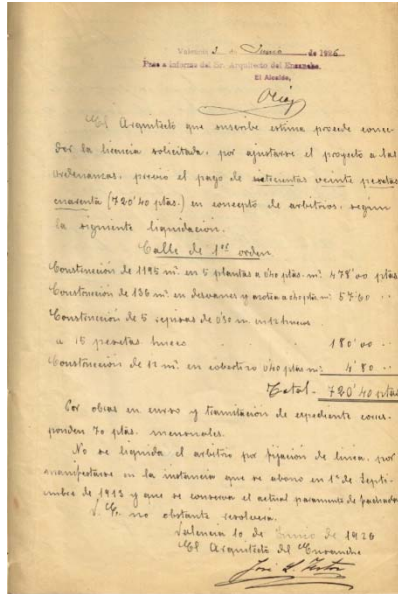 Valencia 2 de Junio de 1926
Pase a informe del Sr. Arquitecto del Ensanche.
El Alcalde,
El Arquitecto que suscribe estima procede conce-
der la licencia solicitada, por ajustarse el proyecto a las
ordenanzas, previo el pago de setecientas veinte pesetas
cuarenta (720'40 ptas.) en concepto de arbitrios, según
la siguiente liquidación.
Calle de 1er orden
Construcción de 1195 m² en 5 plantas a 0'40 ptas. m² 478'00 ptas
Construcción de 136 m² en desvanes y azotea a 0'40 ptas m² 57'60 "
Construcción de 5 repisas de 0'30 m. en 12 huecos
a 15 pesetas hueco 180'00 "
Construcción de 12 m² en cobertizo 0'40 ptas m² 4'80 "
Total - 720'40 ptas
Por obras en curso y tramitación de expediente corres-
ponden 70 ptas. mensuales.
No se liquida el arbitrio por fijación de linea, por
manifestarse en la instancia que se abono en 1º de Septi-
embre de 1913 y que se conserva el actual paramento de fachada
V. E. no obstante resolvera.
Valencia 10 de Junio de 1926
El Arquitecto del Ensanche
José L. Testor